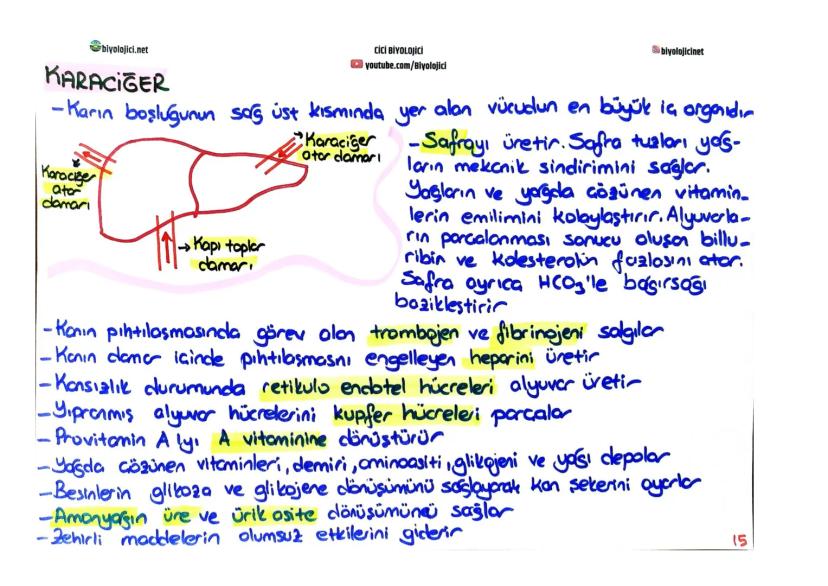 biyolojici.net
CİCİ BİYOLOJİCİ
youtube.com/Biyolojici
biyolojicinet
KARACİĞER
-Karın boşluğunun sağ üst kısmında yer alan vücudun en büyük iç organıdır
Karaciğer
atar damarı
Karaciğer
atar
damarı
Kapı toplar
damarı
-Safrayı üretir. Safra tuzları yağ-
ların mekanik sindirimini sağlar.
Yağların ve yağda çözünen vitamin-
lerin emilimini kolaylaştırır. Alyuvarla-
rın parçalanması sonucu oluşan billu-
ribin ve kolesterolün fazlasını atar.
Safra ayrıca HCO₃'le bağırsağı
bazikleştirir
-Kanın pıhtılaşmasında görev alan trombojen ve fibrinojeni salgılar
-Kanın damar içinde pıhtılaşmasnı engelleyen heparini üretir
-Kansızlık durumunda retikulo endotel hücreleri alyuvar üretir
-Yıpranmış alyuvar hücrelerini kupfer hücreleri parçalar
-Provitamin A'yı A vitaminine dönüştürür
-Yağda çözünen vitaminleri, demiri, aminoasiti, glikojeni ve yağı depolar
-Besinlerin glikoza ve glikojene dönüşümünü sağlayarak kan şekerini ayarlar
-Amonyağın üre ve ürik asite dönüşümünü sağlar
-Zehirli maddelerin olumsuz etkilerini giderir
15